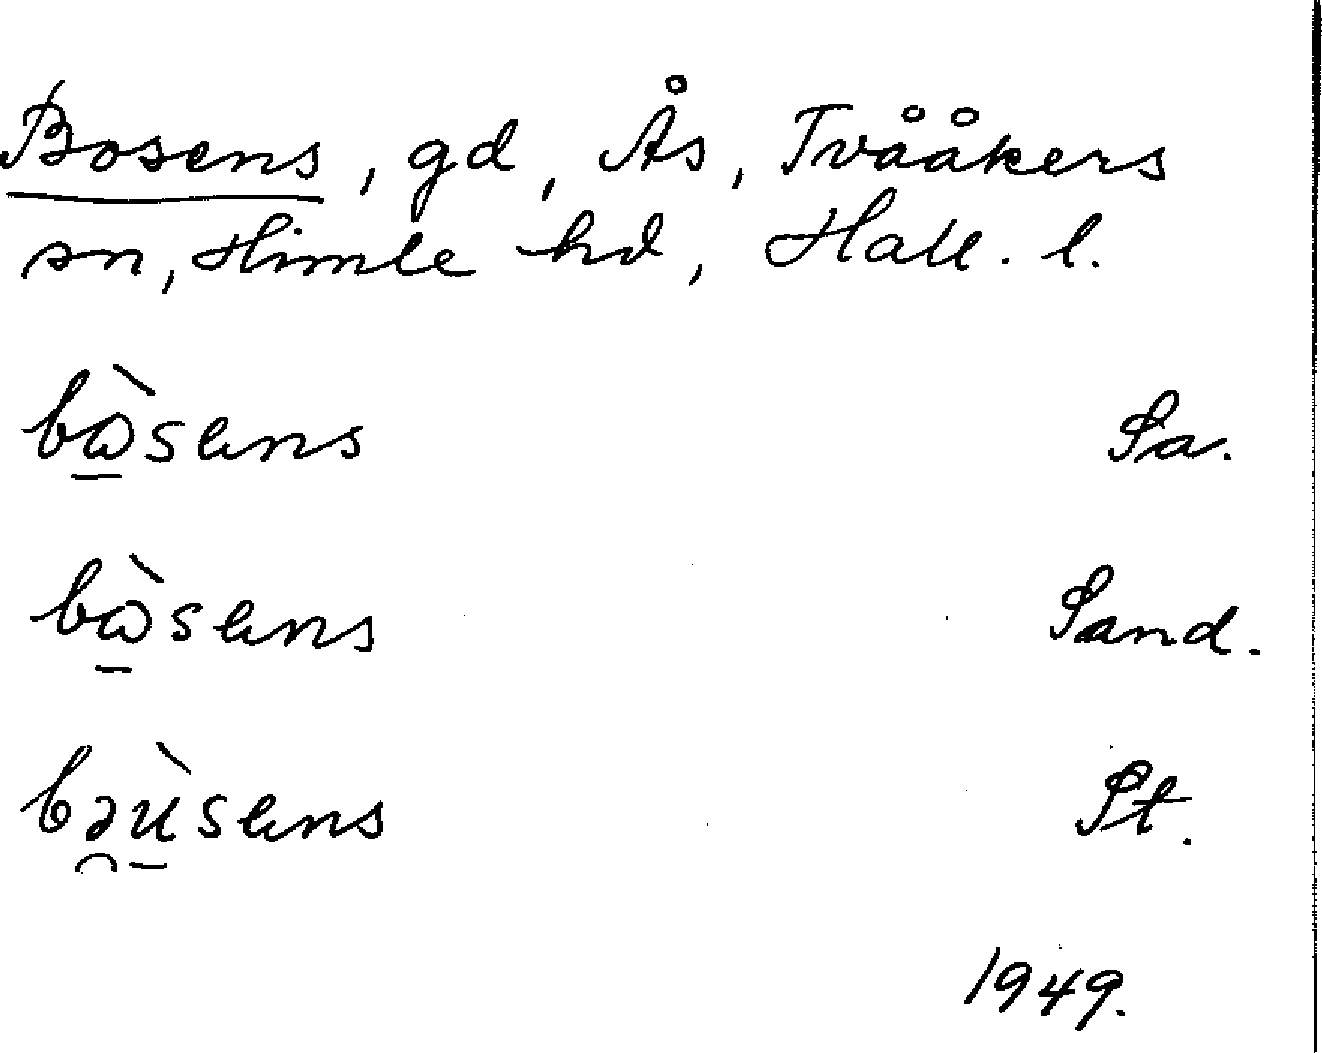 Bosens, gd, Ås, Tvååkers
sn, Himle hd, Hall. l.
bɷ̱̀sens Sa.
bɷ̱̀sens Sand.
bə̯ṳ̀sens St.
1949.